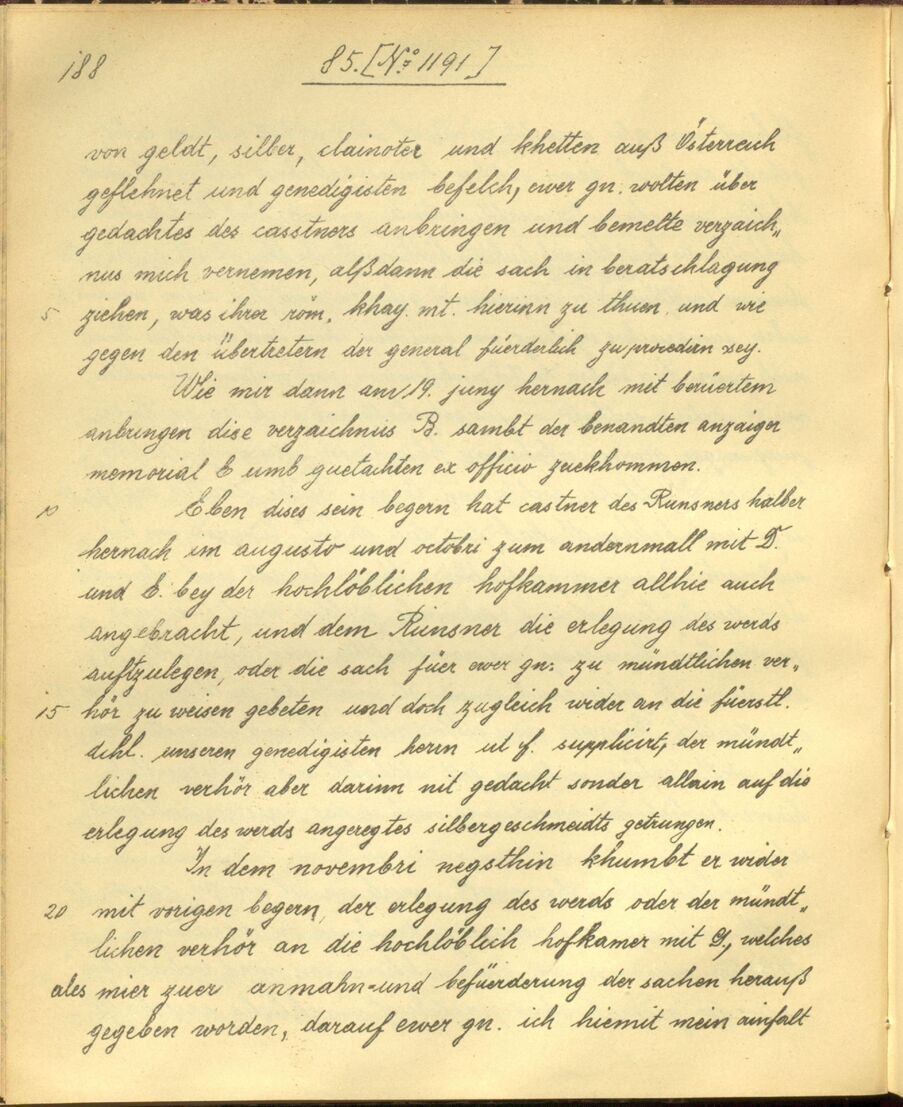 188
85. [No. 1191]
von geldt, silber, clainoter und khetten auß Österreich
geflehnet und genedigisten befelch, ewer gn. wolten über
gedachtes des casstners anbringen und bemelte verzaich„
nus mich vernemen, alßdann die sach in beratschlagung
5 ziehen, was ihrer röm. khay. mt. hierinn zu thuen und wie
gegen den übertretern der general füerderlich zu procedirn sey.
Wie mir dann am 19. juny hernach mit berüertem
anbringen dise verzaichnus B. sambt der benandten anzaiger
memorial C umb guetachten ex officio zuekhommen.
10 Eben dises sein begern hat castner des Runsners halber
hernach im augusto und octobri zum andernmall mit D.
und E. bey der hochlöblichen hofkammer allhie auch
angebracht, und dem Runsner die erlegung des werds
auftzulegen, oder die sach füer ewer gn: zu mündtlichen ver„
15 hör zu weisen gebeten und doch zugleich wider an die füerstl.
dchl. unseren genedigisten herrn ut f. supplicirt, der mündt„
lichen verhör aber darinn nit gedacht sonder allain auf die
erlegung des werds angeregtes silbergeschmeidts getrungen.
In dem novembri negsthin khumbt er wider
20 mit vorigen begern, der erlegung des werds oder der mündt„
lichen verhör an die hochlöblich hofkamer mit G., welches
ales mier zuer anmahn- und befüerderung der sachen herauß
gegeben worden, darauf ewer gn. ich hiemit mein ainfalt